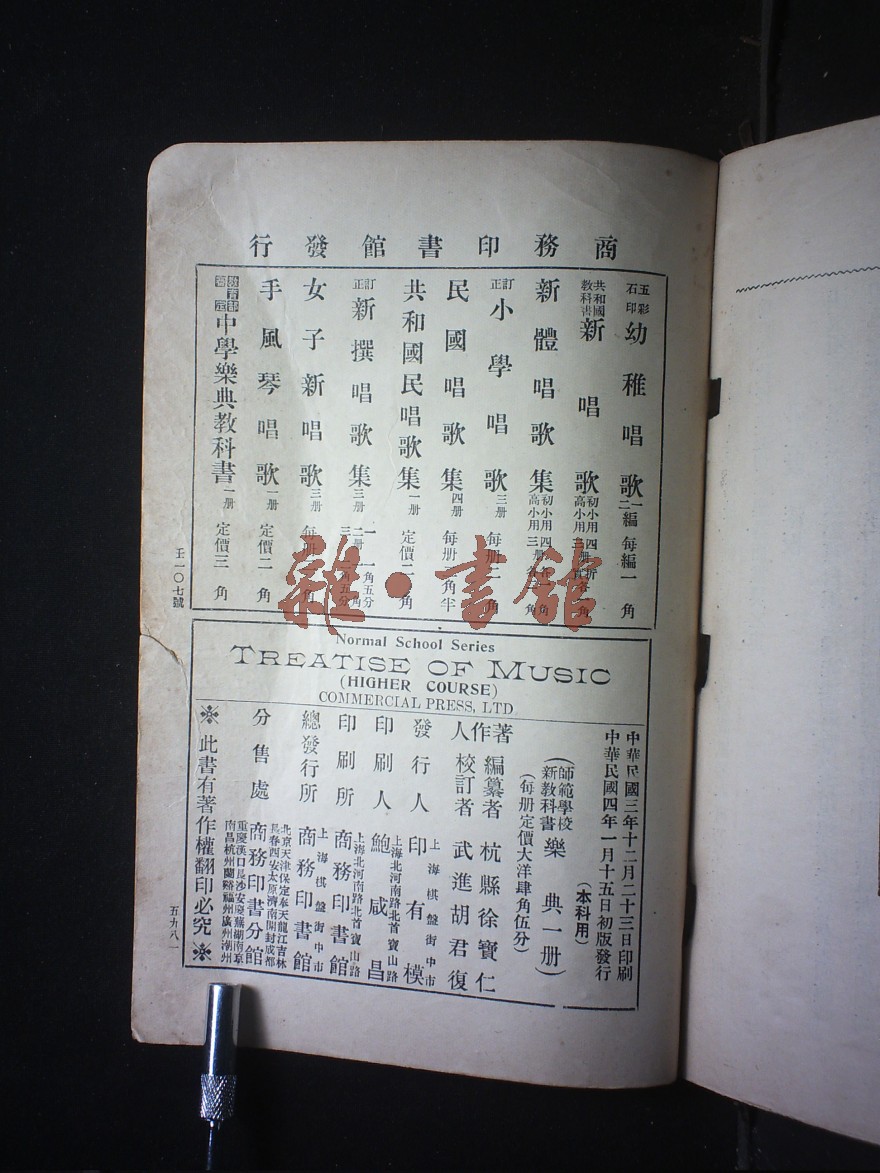 商務印書館發行
五彩石印 幼稚唱歌 一二編 每編一角
共和國教科書 新唱歌 初小用四 高小用三
新體唱歌集 初小用四 高小用三册
訂正 小學唱歌 三册 每册二角
民國唱歌集 四册 每册 角半
共和國民唱歌集 一册 定價二角
訂正 新撰唱歌集 三册
女子新唱歌 三册 每册 角
手風琴唱歌 一册 定價二角
教育部審定 中學樂典教科書 一册 定價三角
壬一〇七號
雜·書館
Normal School Series
TREATISE OF MUSIC
(HIGHER COURSE)
COMMERCIAL PRESS, LTD
中華民國三年十二月二十三日印刷
中華民國四年一月十五日初版發行
(本科用)
(師範學校新教科書 樂典一册)
(每册定價大洋肆角伍分)
著作人 編纂者 杭縣徐寶仁
校訂者 武進胡君復
發行人 上海棋盤街中市 印有模
印刷人 上海北河南路北首寶山路 鮑咸昌
印刷所 上海北河南路北首寶山路 商務印書館
總發行所 上海棋盤街中市 商務印書館
分售處 北京天津保定奉天龍江吉林長春西安太原濟南開封成都重慶漢口長沙安慶蕪湖南京南昌杭州蘭谿福州廣州潮州 商務印書分館
此書有著作權翻印必究
五九八一